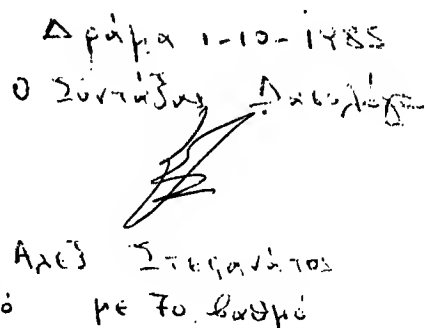 Δράμα 1-10-1985
Ο Συντάξας Δασολόγος
Αλεξ Στεφανάτος
ό με 7ο βαθμό